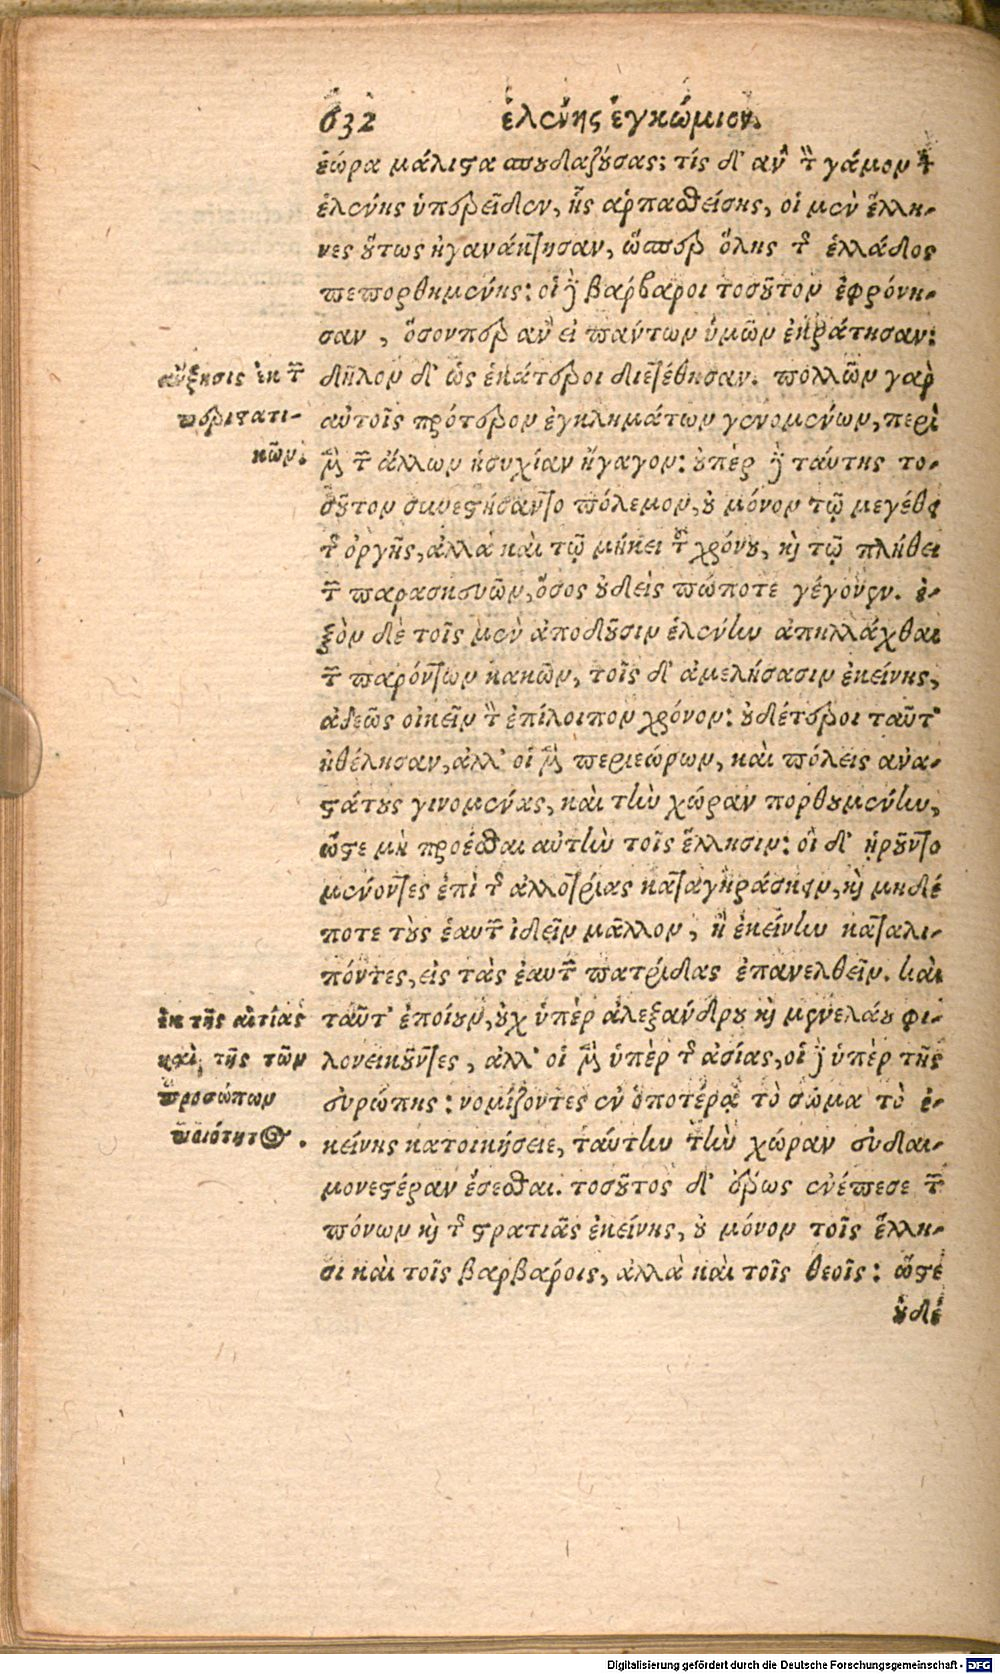 632 ἑλένης ἐγκώμιον.
ἑώρα μάλιστα σπουδαζούσας; τίς δ' ἂν τὸν γάμον τὸν
ἑλένης ὑπερεῖδεν, ἧς ἁρπασθείσης, οἱ μὲν ἕλλη-
νες οὕτως ἠγανάκτησαν, ὥσπερ ὅλης τῆς ἑλλάδος
πεπορθημένης: οἱ δὲ βάρβαροι τοσοῦτον ἐφρόνη-
σαν, ὅσονπερ ἂν εἰ πάντων ὑμῶν ἐκράτησαν:
αὔξησις ἐκ τῶν
περιστατι-
κῶν.
δῆλον δ' ὡς ἑκάτεροι διετέθησαν. πολλῶν γὰρ
αὐτοῖς πρότερον ἐγκλημάτων γενομένων, περὶ
μὲν τῶν ἄλλων ἡσυχίαν ἤγαγον: ὑπὲρ δὲ ταύτης το-
σοῦτον συνεστήσαντο πόλεμον, οὐ μόνον τῷ μεγέθει
τῆς ὀργῆς, ἀλλὰ καὶ τῷ μήκει τοῦ χρόνου, καὶ τῷ πλήθει
τῶν παρασκευῶν, ὅσος οὐδεὶς πώποτε γέγονεν. ἐ-
ξὸν δὲ τοῖς μὲν ἀποδοῦσιν ἑλένην ἀπηλλάχθαι
τῶν παρόντων κακῶν, τοῖς δ' ἀμελήσασιν ἐκείνης,
ἀδεῶς οἰκεῖν τὸν ἐπίλοιπον χρόνον: οὐδέτεροι ταῦτ'
ἠθέλησαν, ἀλλ' οἱ μὲν περιεώρων, καὶ πόλεις ἀνα-
στάτους γινομένας, καὶ τὴν χώραν πορθουμένην,
ὥστε μὴ προέσθαι αὐτὴν τοῖς ἕλλησιν: οἱ δ' ᾑροῦντο
μένοντες ἐπὶ τῆς ἀλλοτρίας καταγηράσκειν, καὶ μηδέ
ποτε τοὺς ἑαυτῶν ἰδεῖν μᾶλλον, ἢ ἐκείνην καταλι-
πόντες, εἰς τὰς ἑαυτῶν πατρίδας ἐπανελθεῖν. καὶ
ἐκ τῆς αἰτίας
καὶ τῆς τῶν
προσώπων
ποιότητος.
ταῦτ' ἐποίουν, οὐχ ὑπὲρ ἀλεξάνδρου καὶ μενελάου φι-
λονεικοῦντες, ἀλλ' οἱ μὲν ὑπὲρ τῆς ἀσίας, οἱ δὲ ὑπὲρ τῆς
εὐρώπης: νομίζοντες ἐν ὁποτέρᾳ τὸ σῶμα τὸ ἐ-
κείνης κατοικήσειε, ταύτην τὴν χώραν εὐδαι-
μονεστέραν ἔσεσθαι. τοσοῦτος δ' ἔρως ἐνέπεσε τῶν
πόνων καὶ τῆς στρατιᾶς ἐκείνης, οὐ μόνον τοῖς ἕλλη-
σι καὶ τοῖς βαρβάροις, ἀλλὰ καὶ τοῖς θεοῖς: ὥστε
οὐδὲ
Digitalisierung gefördert durch die Deutsche Forschungsgemeinschaft - DFG